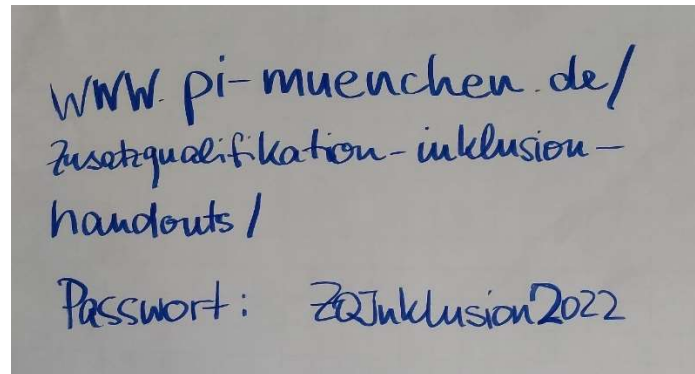 www.pi-muenchen.de/
zusatzqualifikation-inklusion-
handouts/
Passwort: ZQInklusion2022